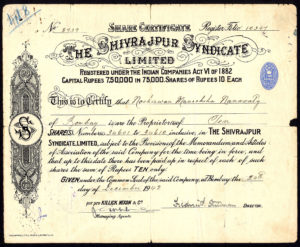 SHARE CERTIFICATE
THE SHIVRAJPUR SYNDICATE
LIMITED
REGISTERED UNDER THE INDIAN COMPANIES ACT VI OF 1882
CAPITAL RUPEES 7,50,000 IN 75,000 SHARES OF RUPEES 10. EACH
This is to Certify that
of Bombay is/are the Proprietor/s of Ten
SHARES Numbers 34601 to 34610 inclusive, in THE SHIVRAJPUR
SYNDICATE, LIMITED, subject to the Provisions of the Memorandum and Articles
of Association of the said Company for the time being in force, and
that up to this date there has been paid up in respect of each of such
shares the sum of Rupees TEN only.
GIVEN under the Common Seal of the said Company, at Bombay, the
day of December 1942
per KILLICK, NIXON & Co.
Managing Agents.
DIRECTOR.